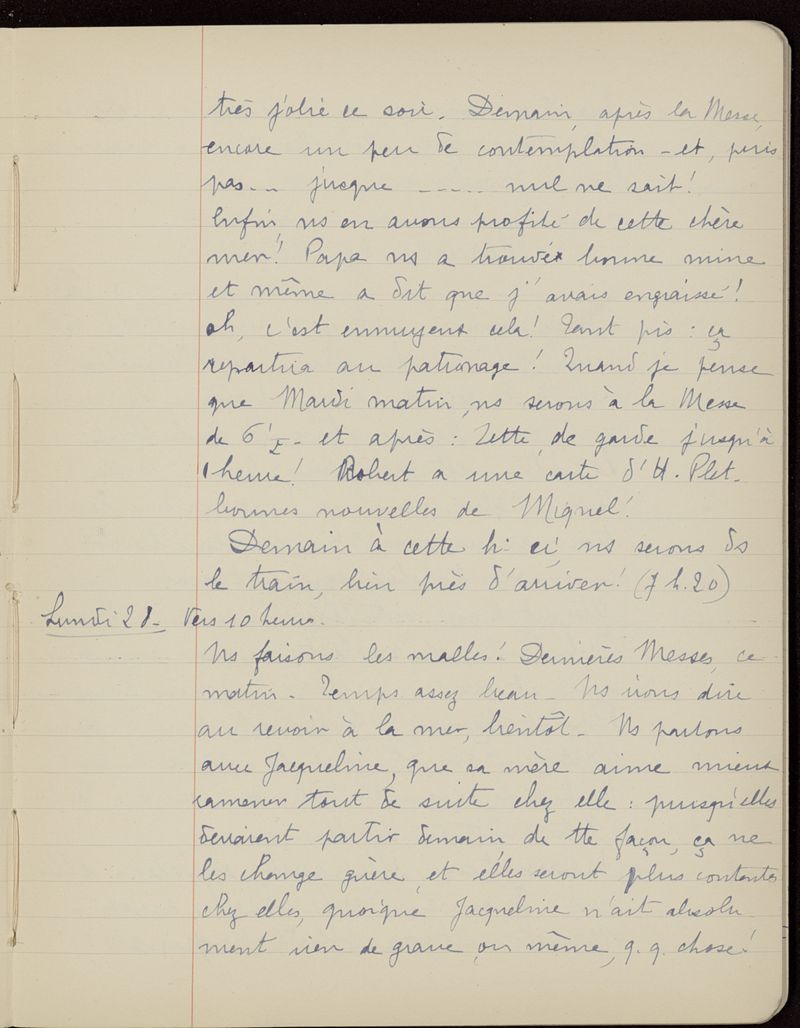 très jolie ce soir. Demain, après la Messe,
encore un peu de contemplation - et, puis
pas... jusque ..... nul ne sait!
Enfin, ns en avons profité de cette chère
mer! Papa ns a trouvé bonne mine
et même a dit que j'avais engraissé!
oh, c'est ennuyeux cela! Tant pis : ça
repartira au patronage! Quand je pense
que Mardi matin, ns serons à la Messe
de 6h - et après : Zette, de garde jusqu'à
1 heure! Robert a une carte d'H. Plet.
bonnes nouvelles de Miguel!
Demain à cette h. ci, ns serons ds
le train, bien près d'arriver! (7 h. 20)
Lundi 28 - Vers 10 heures.
Ns faisons les malles! Dernières Messes, ce
matin - Temps assez beau - Ns irons dire
au revoir à la mer, bientôt - Ns partons
avec Jacqueline, que sa mère aime mieux
ramener tout de suite chez elle : puisqu'elles
devaient partir demain, de tte façon, ça ne
les change guère, et elles seront plus contentes
chez elles, quoique Jacqueline n'ait absolu-
ment rien de grave, ou même, q.q. chose!